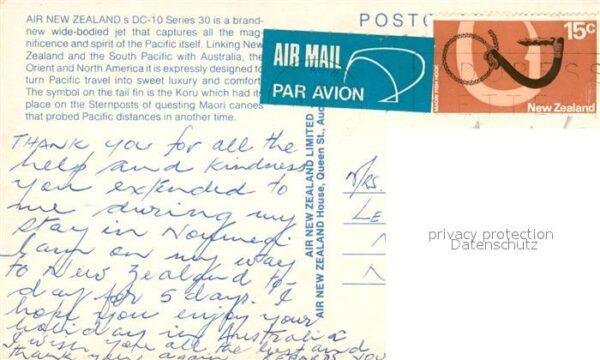 AIR NEW ZEALAND s DC-10 Series 30 is a brand-
new wide-bodied jet that captures all the mag-
nificence and spirit of the Pacific itself. Linking New
Zealand and the South Pacific with Australia, the
Orient and North America it is expressly designed to
turn Pacific travel into sweet luxury and comfort.
The symbol on the tail fin is the Koru which had its
place on the Sternposts of questing Maori canoes
that probed Pacific distances in another time.
POSTC
AIR MAIL
PAR AVION
15c
MAORI FISH HOOK
New Zealand
AIR NEW ZEALAND LIMITED
AIR NEW ZEALAND House, Queen St., Auc
THANK you for all the
help and kindness
you extended to
me during my
stay in
I am on my way
to New Zealand to-
day for 5 days. I
hope you enjoy your
holiday in Australia
I wish you all the best and
Thank you again
MRS.
LE
N
N
privacy protection
Datenschutz